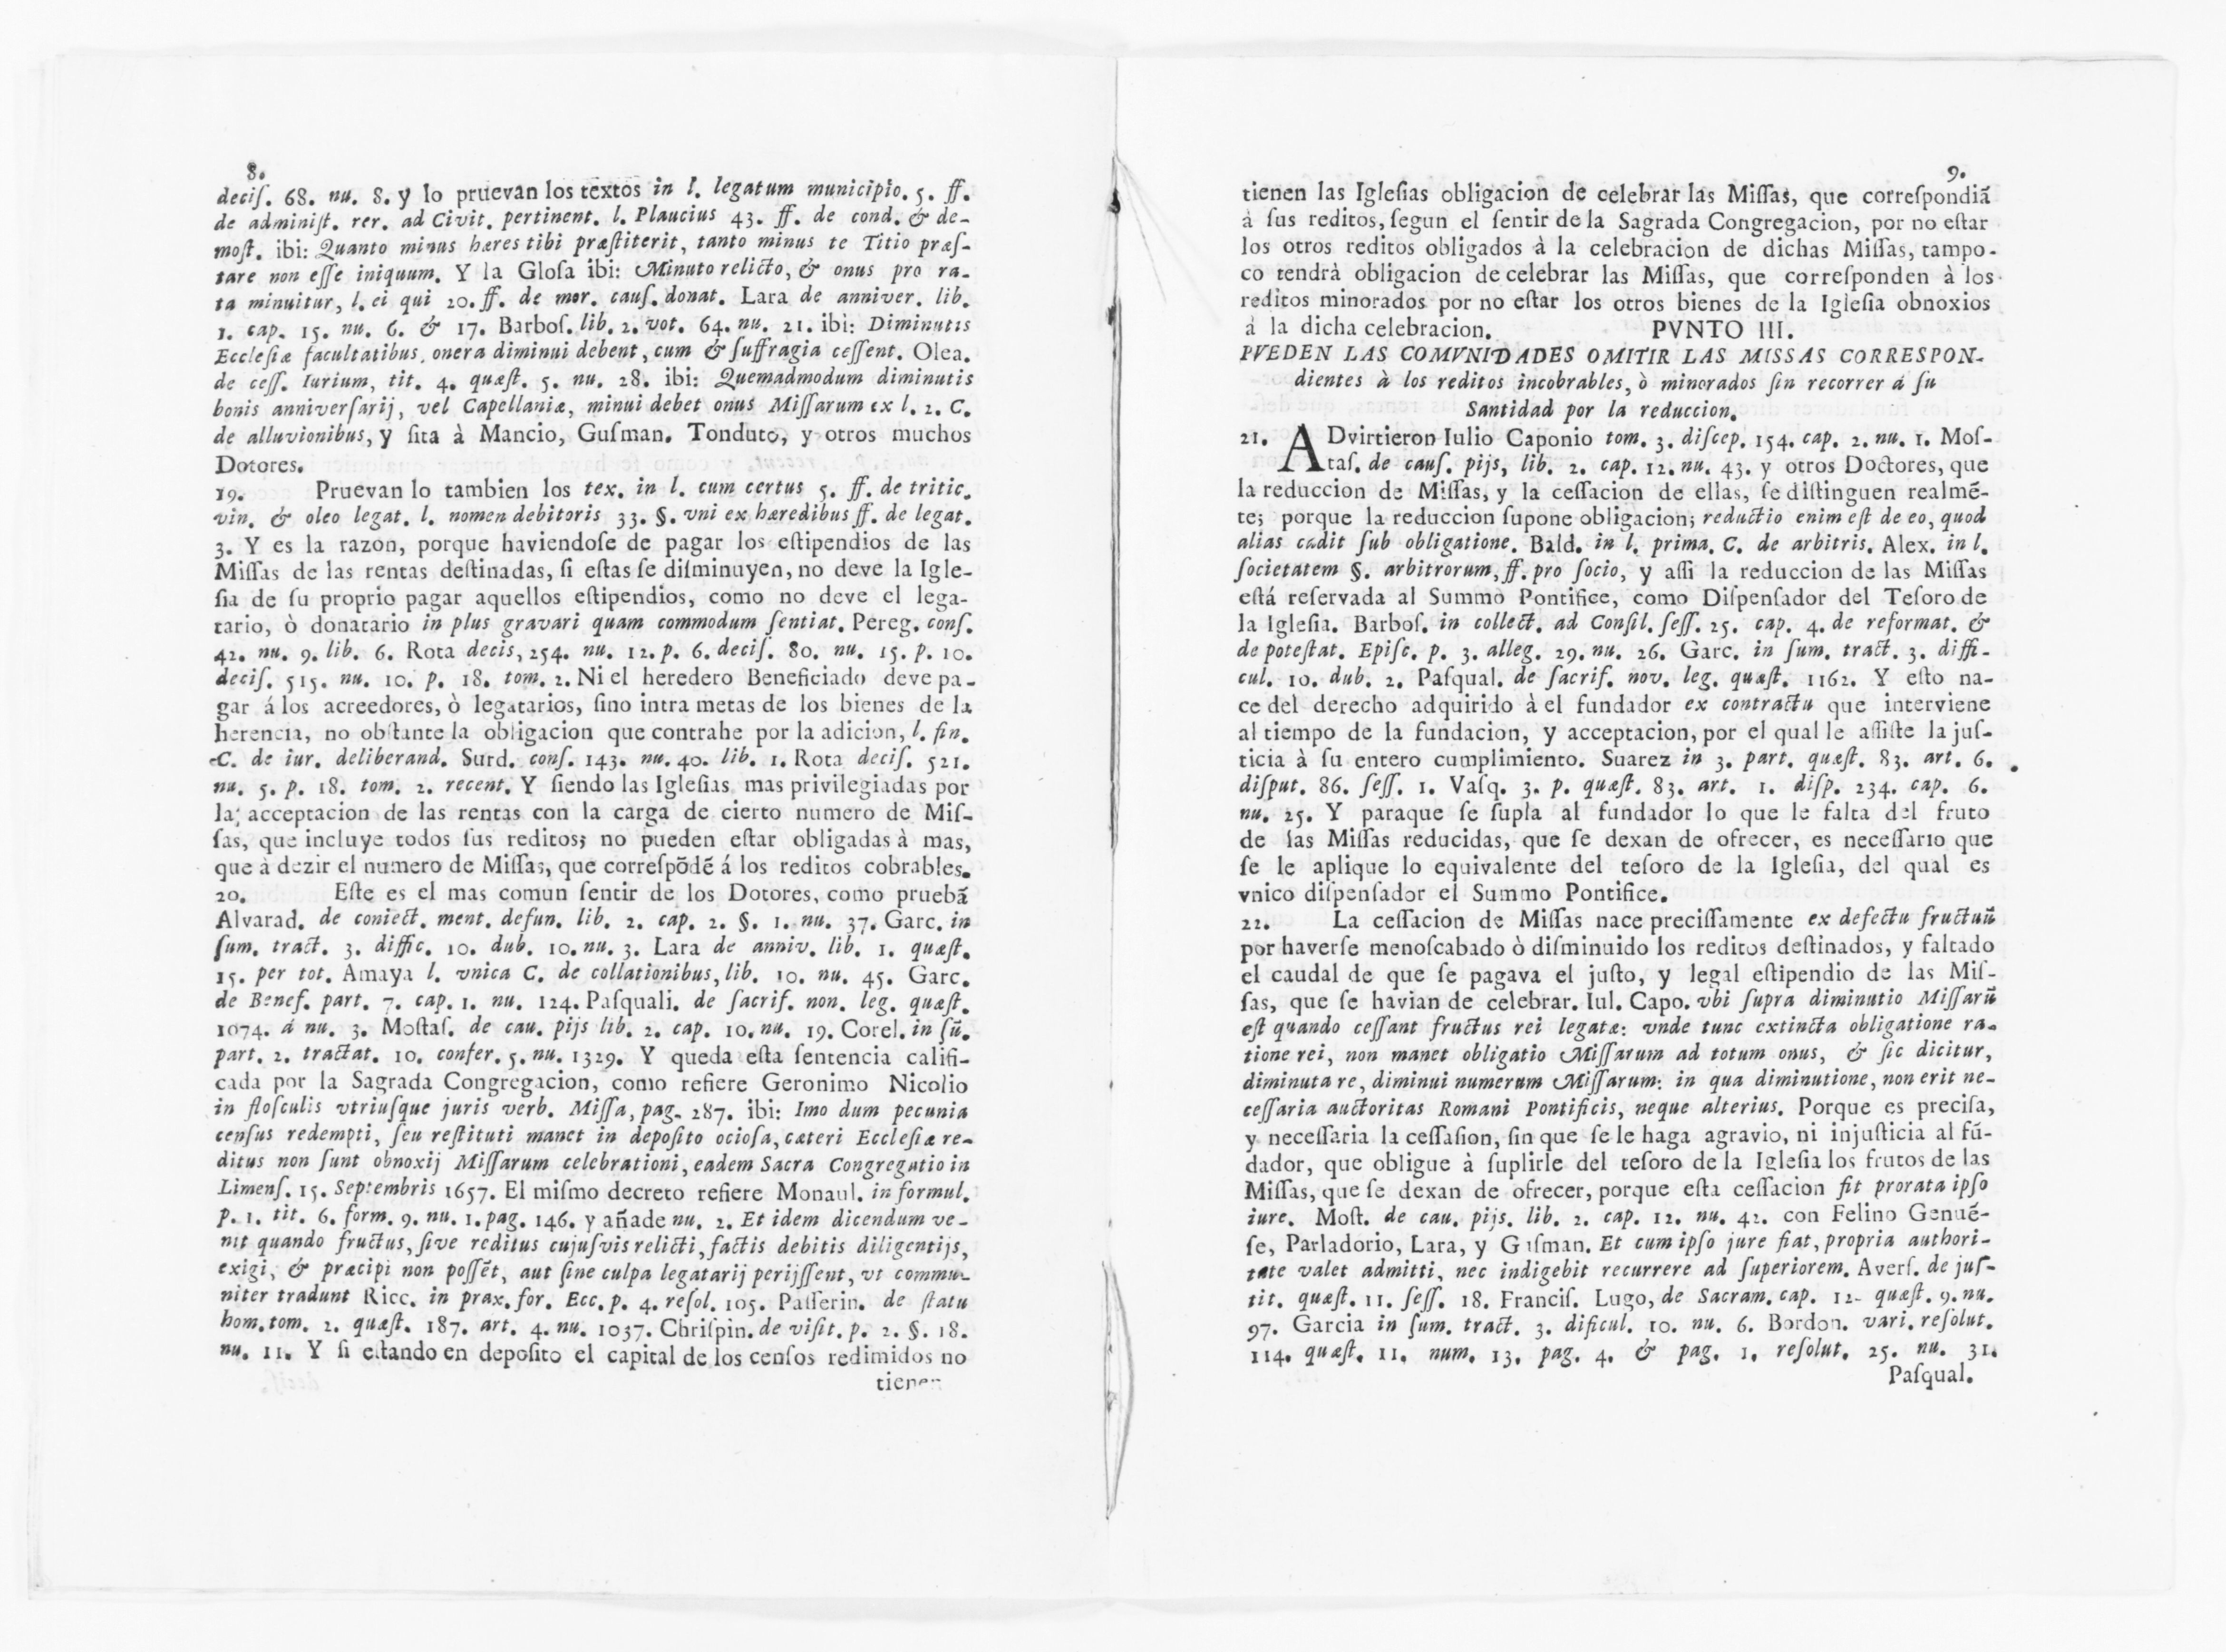 8.
deciſ. 68. nu. 8. y lo pruevan los textos in l. legatum municipio. 5. ff.
de adminiſt. rer. ad Civit. pertinent. l. Plaucius 43. ff. de cond. & de-
moſt. ibi: Quanto minus hæres tibi præſtiterit, tanto minus te Titio præſ-
tare non eſſe iniquum. Y la Gloſa ibi: Minuto relicto, & onus pro ra-
ta minuitur, l. ei qui 20. ff. de mor. cauſ. donat. Lara de anniver. lib.
1. cap. 15. nu. 6. & 17. Barboſ. lib. 2. vot. 64. nu. 21. ibi: Diminutis
Eccleſiæ facultatibus, onera diminui debent, cum & ſuffragia ceſſent. Olea.
de ceſſ. Iurium, tit. 4. quæſt. 5. nu. 28. ibi: Quemadmodum diminutis
bonis anniverſarij, vel Capellaniæ, minui debet onus Miſſarum ex l. 2. C.
de alluvionibus, y ſita à Mancio, Guſman. Tonduto, y otros muchos
Dotores.
19. Pruevan lo tambien los tex. in l. cum certus 5. ff. de tritic.
vin. & oleo legat. l. nomen debitoris 33. §. vni ex hæredibus ff. de legat.
3. Y es la razon, porque haviendoſe de pagar los eſtipendios de las
Miſſas de las rentas deſtinadas, ſi eſtas ſe diſminuyen, no deve la Igle-
ſia de ſu proprio pagar aquellos eſtipendios, como no deve el lega-
tario, ò donatario in plus gravari quam commodum ſentiat. Pereg. conſ.
42. nu. 9. lib. 6. Rota decis, 254. nu. 12. p. 6. deciſ. 80. nu. 15. p. 10.
deciſ. 515. nu. 10. p. 18. tom. 2. Ni el heredero Beneficiado deve pa-
gar á los acreedores, ò legatarios, ſino intra metas de los bienes de la
herencia, no obſtante la obligacion que contrahe por la adicion, l. fin.
C. de iur. deliberand. Surd. conſ. 143. nu. 40. lib. 1. Rota deciſ. 521.
nu. 5. p. 18. tom. 2. recent. Y ſiendo las Igleſias mas privilegiadas por
la acceptacion de las rentas con la carga de cierto numero de Miſ-
ſas, que incluye todos ſus reditos; no pueden eſtar obligadas à mas,
que à dezir el numero de Miſſas, que correſpõdẽ á los reditos cobrables.
20. Eſte es el mas comun ſentir de los Dotores, como pruebã
Alvarad. de coniect. ment. defun. lib. 2. cap. 2. §. 1. nu. 37. Garc. in
ſum. tract. 3. diffic. 10. dub. 10. nu. 3. Lara de anniv. lib. 1. quæſt.
15. per tot. Amaya l. vnica C. de collationibus, lib. 10. nu. 45. Garc.
de Benef. part. 7. cap. 1. nu. 124. Paſquali. de ſacrif. non. leg. quæſt.
1074. á nu. 3. Moſtaſ. de cau. pijs lib. 2. cap. 10. nu. 19. Corel. in ſũ.
part. 2. tractat. 10. confer. 5. nu. 1329. Y queda eſta ſentencia califi-
cada por la Sagrada Congregacion, como refiere Geronimo Nicolio
in floſculis vtriuſque juris verb. Miſſa, pag. 287. ibi: Imo dum pecunia
cenſus redempti, ſeu reſtituti manet in depoſito ocioſa, cæteri Eccleſiæ re-
ditus non ſunt obnoxij Miſſarum celebrationi, eadem Sacra Congregatio in
Limenſ. 15. Septembris 1657. El miſmo decreto refiere Monaul. in formul.
p. 1. tit. 6. form. 9. nu. 1. pag. 146. y añade nu. 2. Et idem dicendum ve-
nit quando fructus, ſive reditus cujuſvis relicti, factis debitis diligentijs,
exigi, & præcipi non poſſẽt, aut ſine culpa legatarij perijſſent, vt commu-
niter tradunt Ricc. in prax. for. Ecc. p. 4. reſol. 105. Paſſerin. de ſtatu
hom. tom. 2. quæſt. 187. art. 4. nu. 1037. Chriſpin. de viſit. p. 2. §. 18.
nu. 11. Y ſi eſtando en depoſito el capital de los cenſos redimidos no
tienen
9.
tienen las Igleſias obligacion de celebrar las Miſſas, que correſpondiã
à ſus reditos, ſegun el ſentir de la Sagrada Congregacion, por no eſtar
los otros reditos obligados à la celebracion de dichas Miſſas, tampo-
co tendrà obligacion de celebrar las Miſſas, que correſponden à los
reditos minorados por no eſtar los otros bienes de la Igleſia obnoxios
á la dicha celebracion. PVNTO III.
PVEDEN LAS COMVNIDADES OMITIR LAS MISSAS CORRESPON-
dientes à los reditos incobrables, ò minorados ſin recorrer á ſu
Santidad por la reduccion.
21. ADvirtieron Iulio Caponio tom. 3. diſcep. 154. cap. 2. nu. 1. Moſ-
taſ. de cauſ. pijs, lib. 2. cap. 12. nu. 43. y otros Doctores, que
la reduccion de Miſſas, y la ceſſacion de ellas, ſe diſtinguen realmẽ-
te; porque la reduccion ſupone obligacion; reductio enim eſt de eo, quod
alias cadit ſub obligatione. Bald. in l. prima. C. de arbitris. Alex. in l.
ſocietatem §. arbitrorum, ff. pro ſocio, y aſſi la reduccion de las Miſſas
eſtá reſervada al Summo Pontifice, como Diſpenſador del Teſoro de
la Igleſia. Barboſ. in collect. ad Conſil. ſeſſ. 25. cap. 4. de reformat. &
de poteſtat. Epiſc. p. 3. alleg. 29. nu. 26. Garc. in ſum. tract. 3. diffi-
cul. 10. dub. 2. Paſqual. de ſacrif. nov. leg. quæſt. 1162. Y eſto na-
ce del derecho adquirido à el fundador ex contractu que interviene
al tiempo de la fundacion, y acceptacion, por el qual le aſſiſte la juſ-
ticia à ſu entero cumplimiento. Suarez in 3. part. quæſt. 83. art. 6.
diſput. 86. ſeſſ. 1. Vaſq. 3. p. quæſt. 83. art. 1. diſp. 234. cap. 6.
nu. 25. Y paraque ſe ſupla al fundador lo que le falta del fruto
de las Miſſas reducidas, que ſe dexan de ofrecer, es neceſſario que
ſe le aplique lo equivalente del teſoro de la Igleſia, del qual es
vnico diſpenſador el Summo Pontifice.
22. La ceſſacion de Miſſas nace preciſſamente ex defectu fructuũ
por haverſe menoſcabado ò diſminuido los reditos deſtinados, y faltado
el caudal de que ſe pagava el juſto, y legal eſtipendio de las Miſ-
ſas, que ſe havian de celebrar. Iul. Capo. vbi ſupra diminutio Miſſarũ
eſt quando ceſſant fructus rei legatæ: vnde tunc extincta obligatione ra-
tione rei, non manet obligatio Miſſarum ad totum onus, & ſic dicitur,
diminuta re, diminui numerum Miſſarum: in qua diminutione, non erit ne-
ceſſaria auctoritas Romani Pontificis, neque alterius. Porque es preciſa,
y neceſſaria la ceſſaſion, ſin que ſe le haga agravio, ni injuſticia al fũ-
dador, que obligue à ſuplirle del teſoro de la Igleſia los frutos de las
Miſſas, que ſe dexan de ofrecer, porque eſta ceſſacion fit prorata ipſo
iure. Moſt. de cau. pijs. lib. 2. cap. 12. nu. 42. con Felino Genuẽ-
ſe, Parladorio, Lara, y Guſman. Et cum ipſo jure fiat, propria authori-
tate valet admitti, nec indigebit recurrere ad ſuperiorem. Averſ. de juſ-
tit. quæſt. 11. ſeſſ. 18. Franciſ. Lugo, de Sacram. cap. 12. quæſt. 9. nu.
97. Garcia in ſum. tract. 3. dificul. 10. nu. 6. Bordon. vari. reſolut.
114. quæſt. 11. num. 13. pag. 4. & pag. 1. reſolut. 25. nu. 31.
Paſqual.